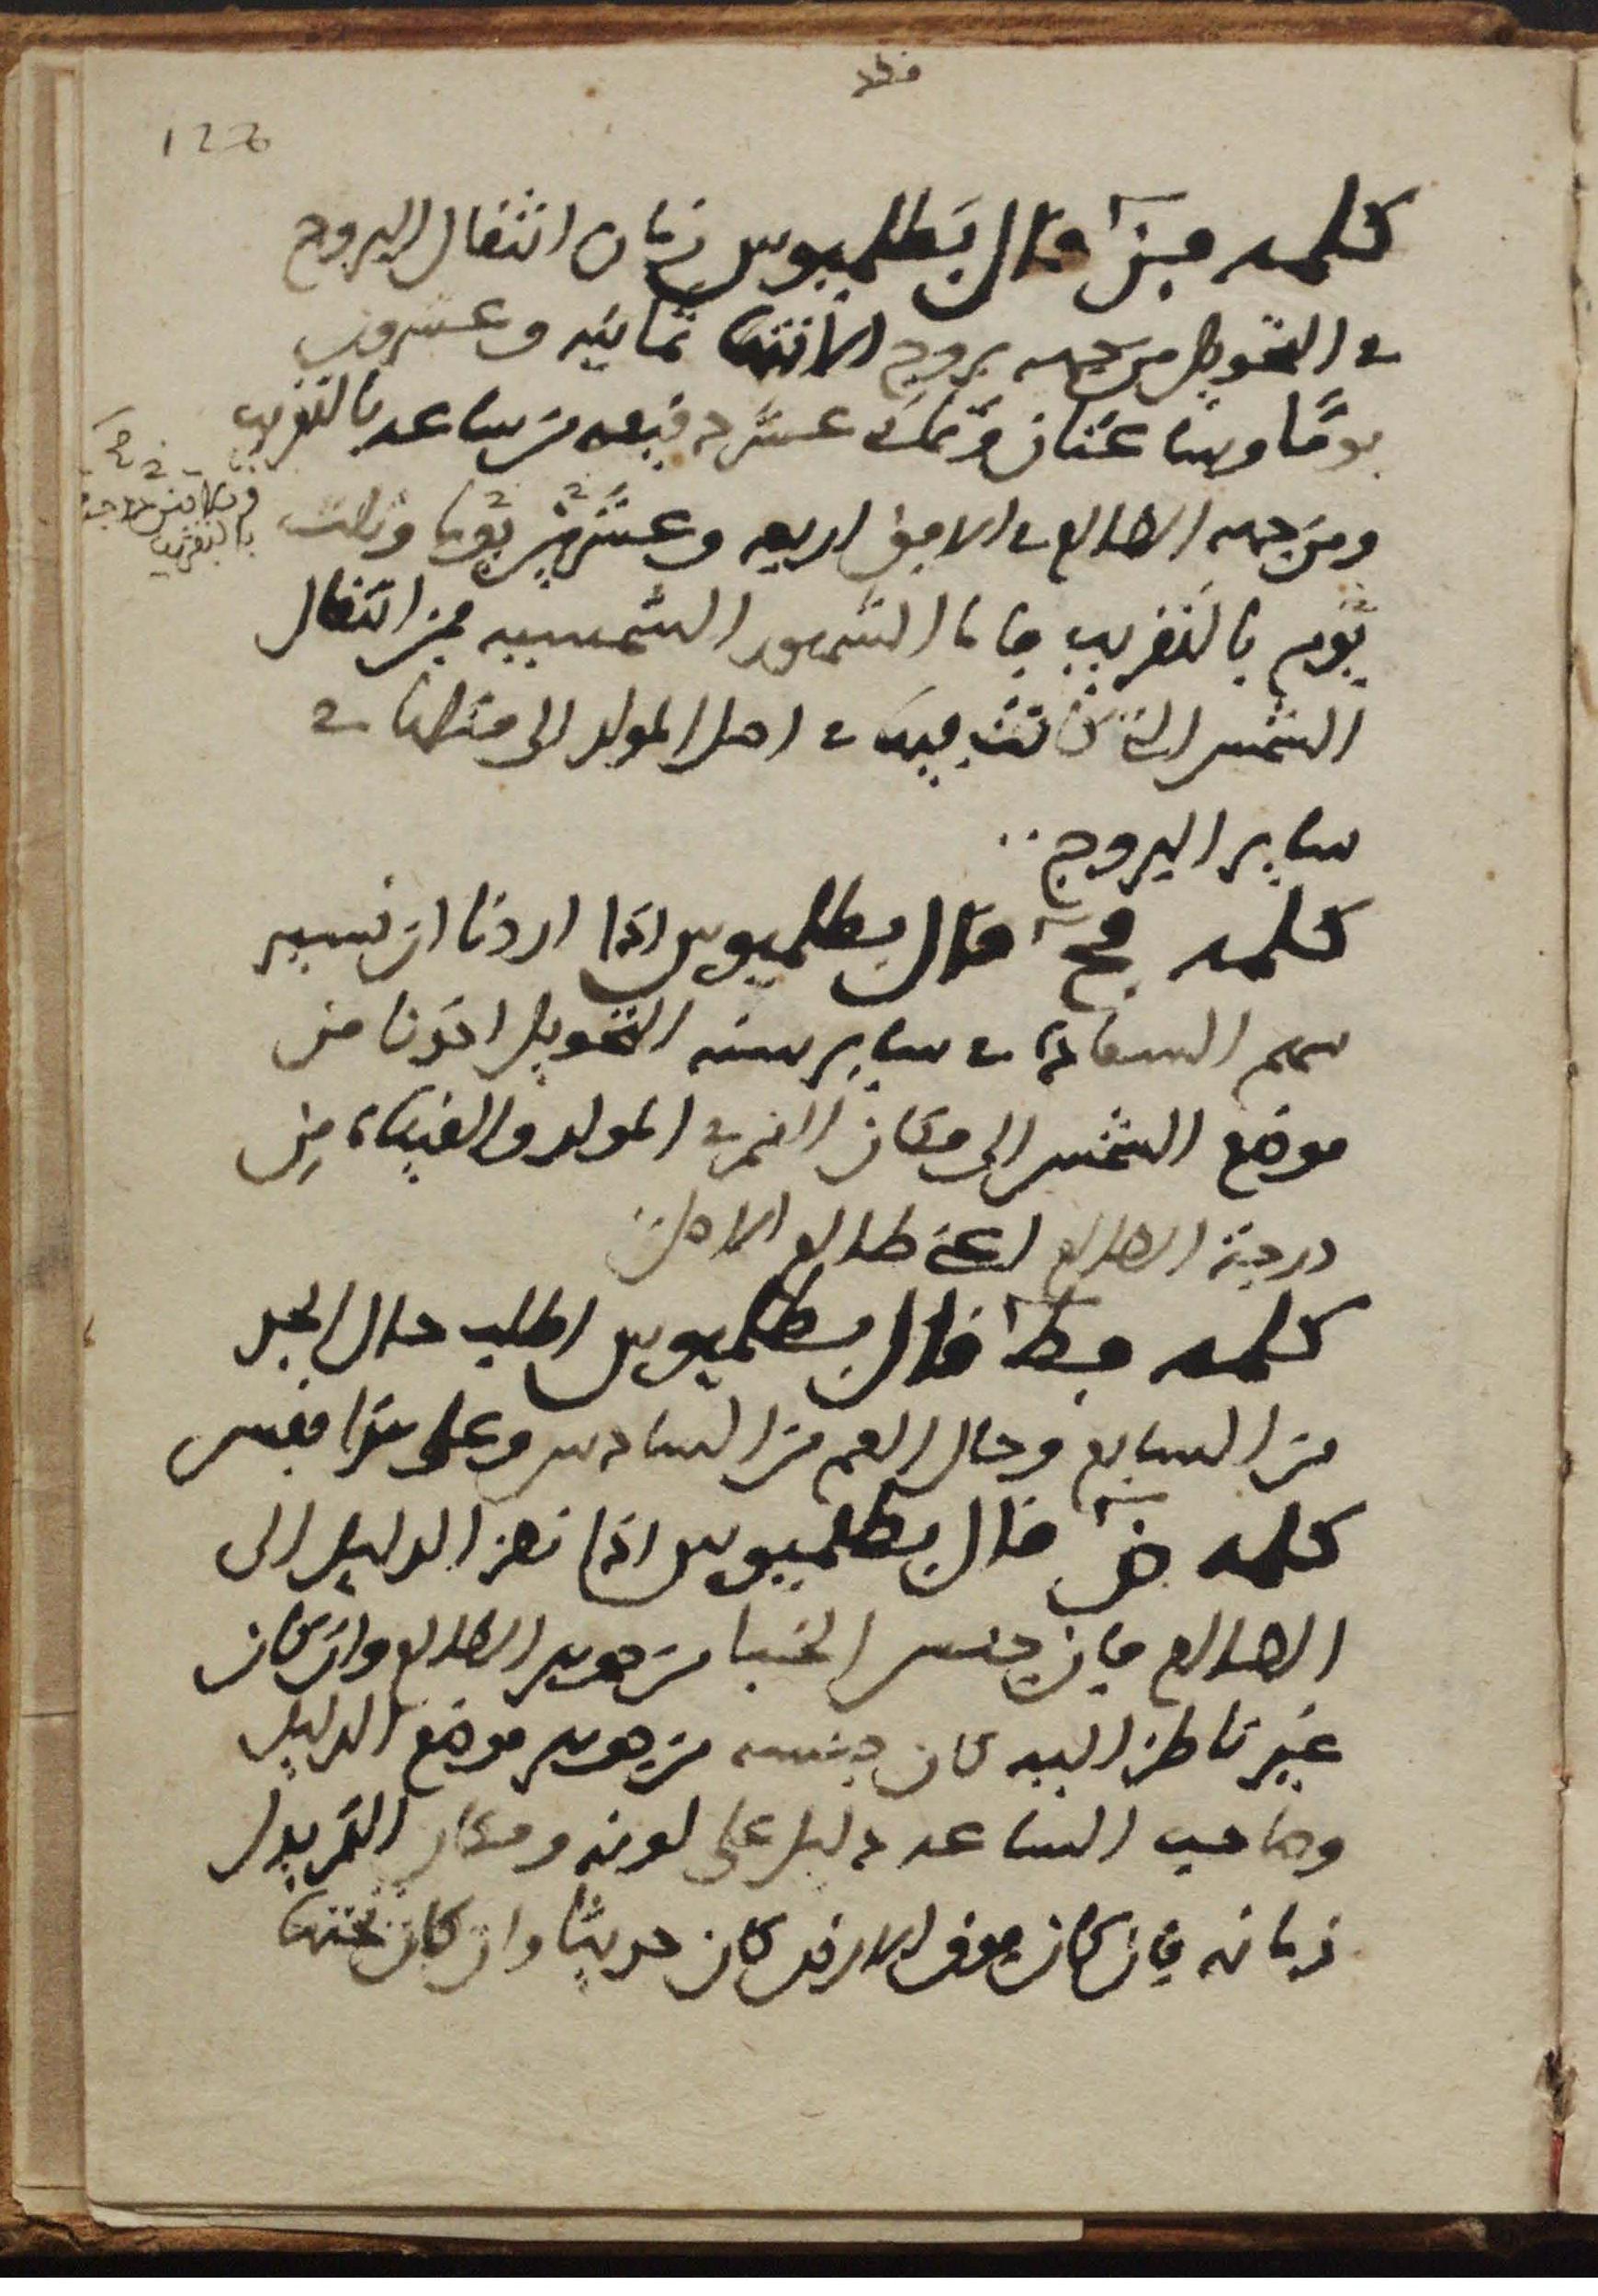 126
كلمه فز قال بطلميوس زمان انتقال البروج
في التحويل من جهه بروج الانتها ثمانيه وعشرون
يومًا وساعتان وثماني عشر دقيقه من ساعه بالتقريب
ومن جهه الطالع في الامور اربعه وعشرين يوما وثلث
بالتقريب
يوم بالتقريب فاما الشهور الشمسيه فمن انتقال
الشمس التي كانت فيه في اصل المولد الى مثلها في
ساير البروج
كلمه فح قال بطلميوس اذا اردنا ان نسير
سهم السعاده في ساير سنه التحويل اخذنا من
موضع الشمس الى مكان القمر في المولد والقيناه من
درجة الطالع اعني طالع الاصل
كلمه فط قال بطلميوس اطلب حال الجد
من السابع وحال العم من السادس وعلى هذا فقس
كلمه ض قال بطلميوس اذا نظر الدليل الى
الطالع فان جنس الخبا من جوهر الطالع وان كان
غير ناظر اليه كان جنسه من جوهر موضع الدليل
وصاحب الساعه دليل على لونه ومكان القمر يدل
زمانه فان كان فوق الارض كان حديثا وان كان تحتها